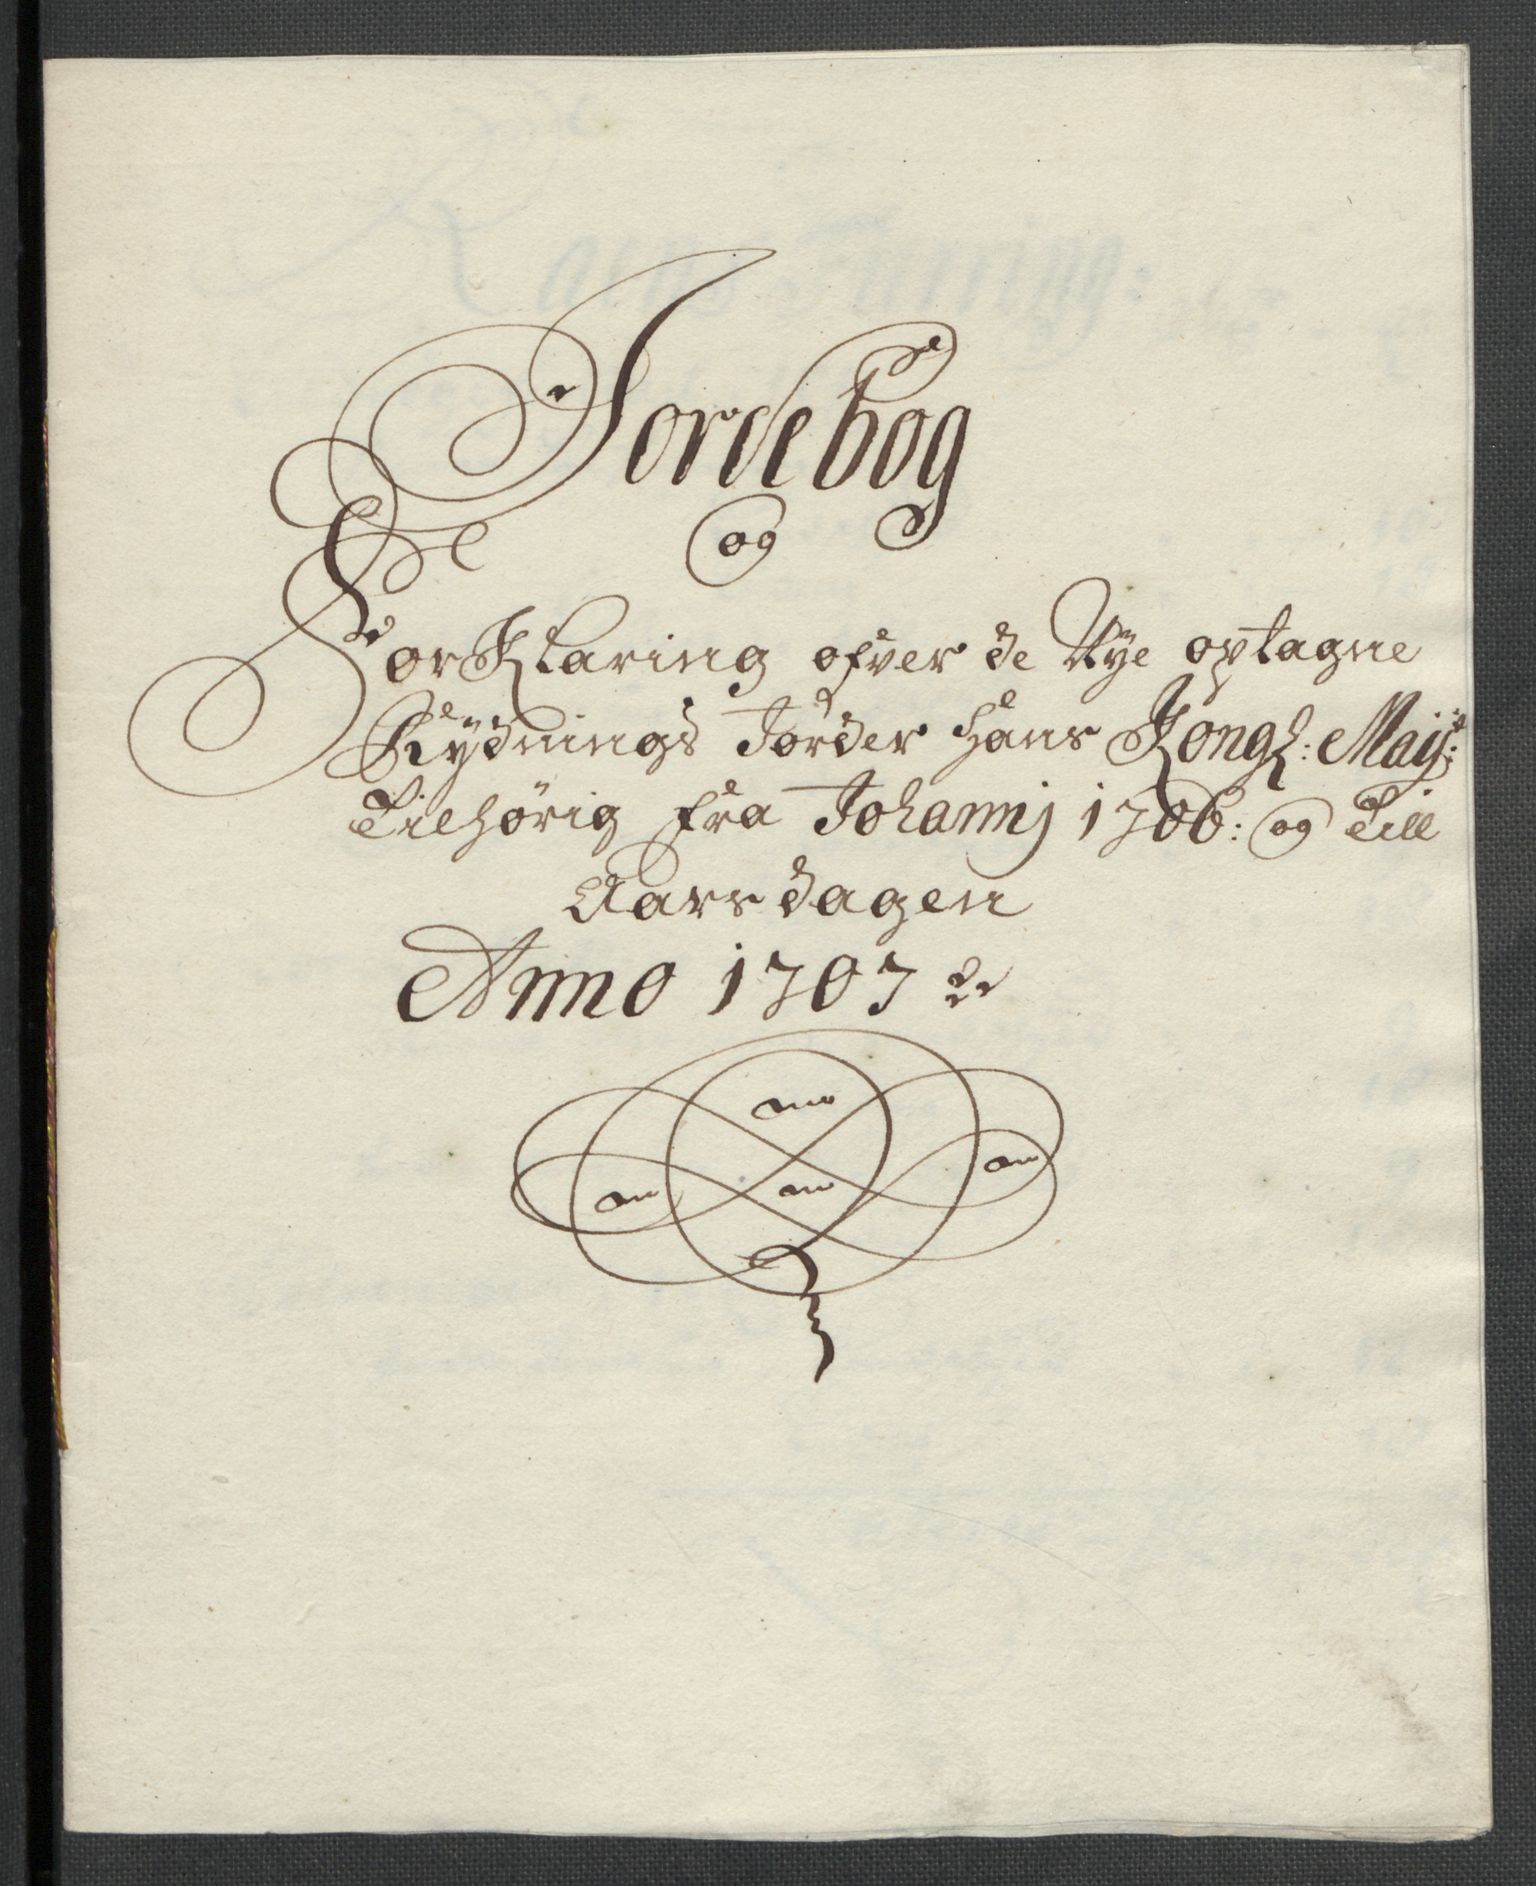 Jordebog
og
Forklaring ofver de Nÿe optagne
Rÿdnings Jorder hans Kongl: Maÿst:
Tilhørig fra Johannj 1706: og Till
Aarsdagen
Anno 1707